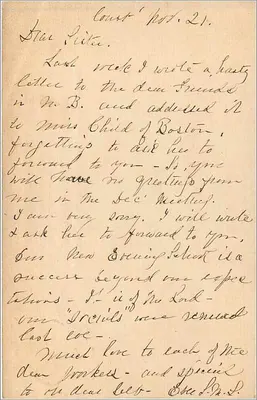 Const' Nov. 21.
Dear Sister.
Last week I wrote a hasty
letter to the dear Friends
in N.B. and addressed it
to Miss Child of Boston,
forgetting to ask her to
forward to you - So you
will have no greetings from
me in the Dec' Meeting.
I am very sorry. I will write
& ask her to forward to you,
Our New Evening School is a
success beyond our expec
tations - It is of the Lord -
our "Socials" were renewed
last eve -
Much love to each of the
dear workers - and special
to